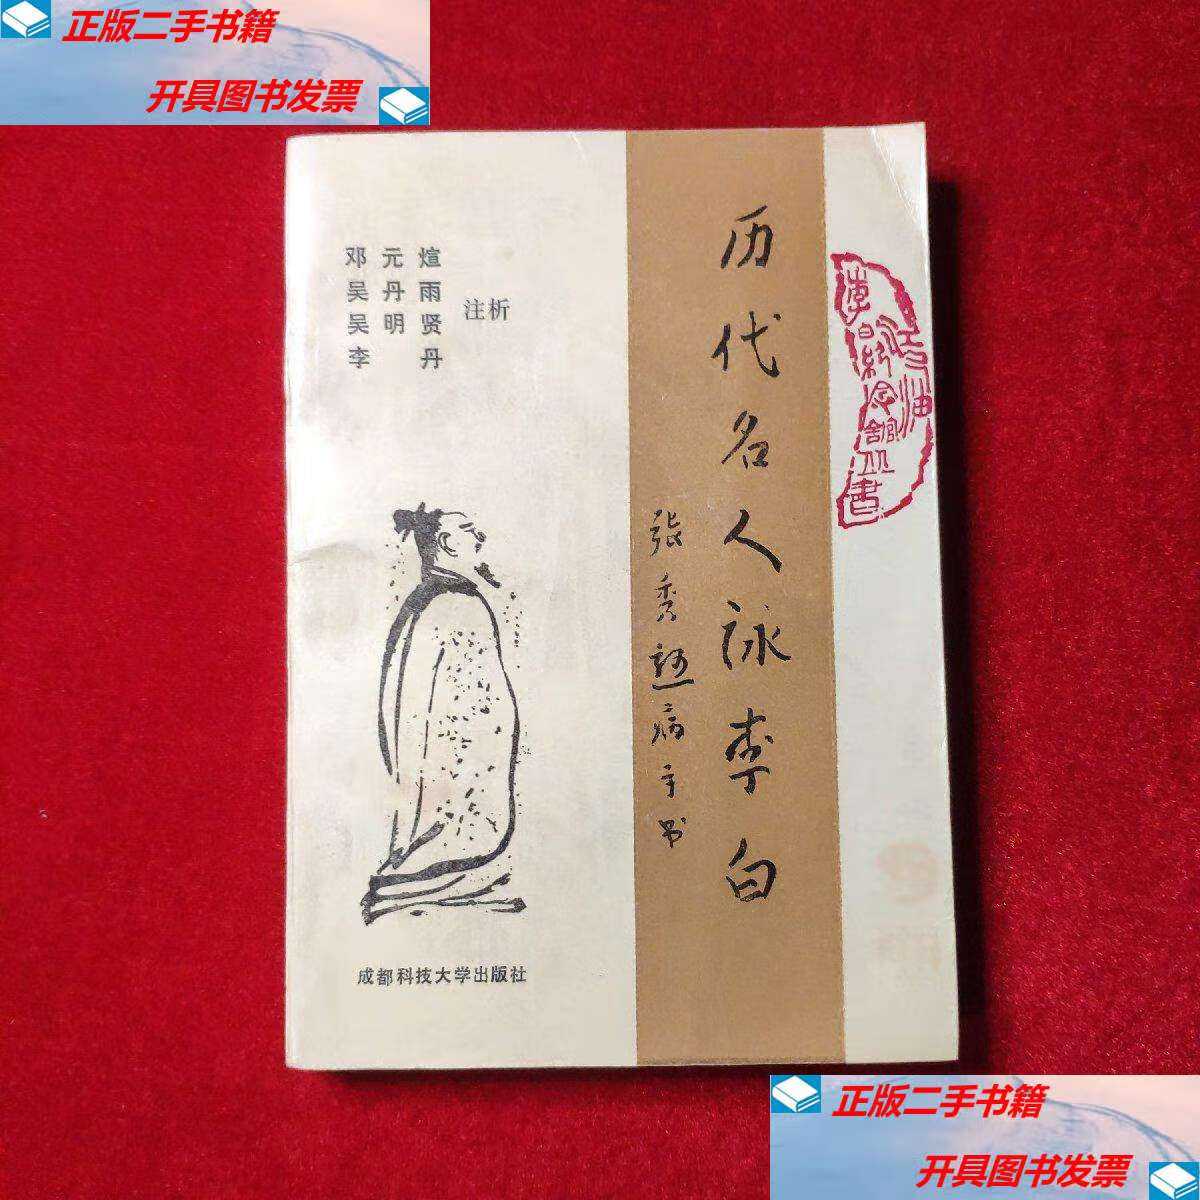 正版二手书籍
开具图书发票
邓元煊
吴丹雨
吴明贤
李丹
注析
历代名人咏李白
张秀熟病手书
江油
李白纪念馆丛书
成都科技大学出版社
正版二手书籍
开具图书发票